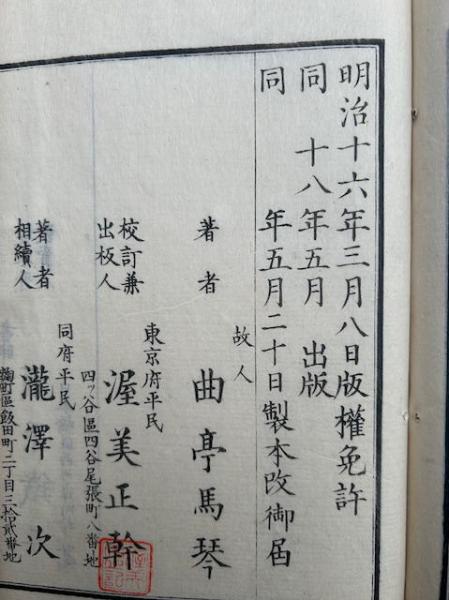 明治十六年三月八日版權免許
同 十八年五月 出版
同 年五月二十日製本改御届
故人
著者 曲亭馬琴
東京府平民
校訂兼
出板人 渥美正幹
四ッ谷區四谷尾張町八番地
同府平民
著者
相續人 瀧澤次
麹町區飯田町二丁目三拾貳番地